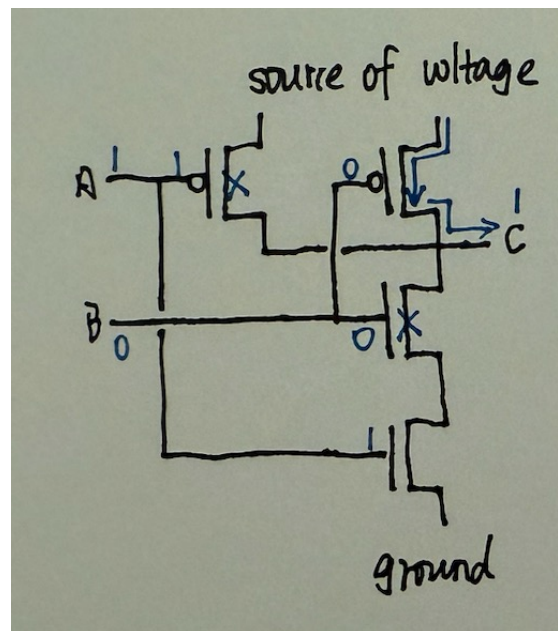 source of voltage
A 1 1
0
1
C
B
0
0
1
ground